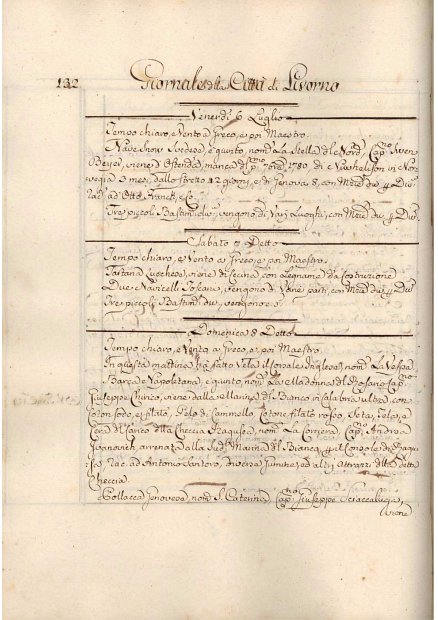 132 Giornale della Città di Livorno
Venerdì 6 Luglio
Tempo chiaro, e Vento a Greco, e poi Maestro.
Nave Snow Svedese, è giunto, nom.ta La Stella del Nord, Cap.no Swen
Beyer, viene d'Ostenda, manca 1780, di in Nor:
vegia 3 mesi, dallo stretto 12 giorni, e di Genova 8, con Merci du: 4 Div:
Rac: ad Otto Franck, e C.o
Tre piccoli Bastim. du: vengono di Varj Luoghi, con Mer: du: 4 Div:
Sabato 7 Detto
Tempo chiaro, e Vento a Greco, e poi Maestro.
Tartana Lucchese, viene di Cecina con Legname da costruzione
Due Navicelli Toscani, vengono di Varie parti, con Mer: du: 4 Div:
Tre piccoli Bastim. du: vengono e.
Domenica 8 Detto
Tempo chiaro, e Vento a Greco, e poi Maestro.
In questa mattina ha fatto Vela il Corsale Inglese nom. La Vespa
Barca Napoletana, è giunto, nom. La Madonna del Rosario Cap.no
Giuseppe viene dalla Marina di Bianco in Calabria ultra con
Coton sodo, e filato, Pelo di Cammello, Cotone filato rosso, Seta, Felpa, e
Cera del Carico della Checcia Ragusea, nom. La Corriera Cap.no Andrea
Ivanovich, arrenata alla Sud.a Marina del Bianco, 4 il Console di Ragu:
sa, Rac: ad Antonio Santoro, diversa fumine, ed altri Attrazzi della detta
Checcia.
Pollacca Genovese, nom. S. Caterina, Cap.no Giuseppe Sciaccaluga,